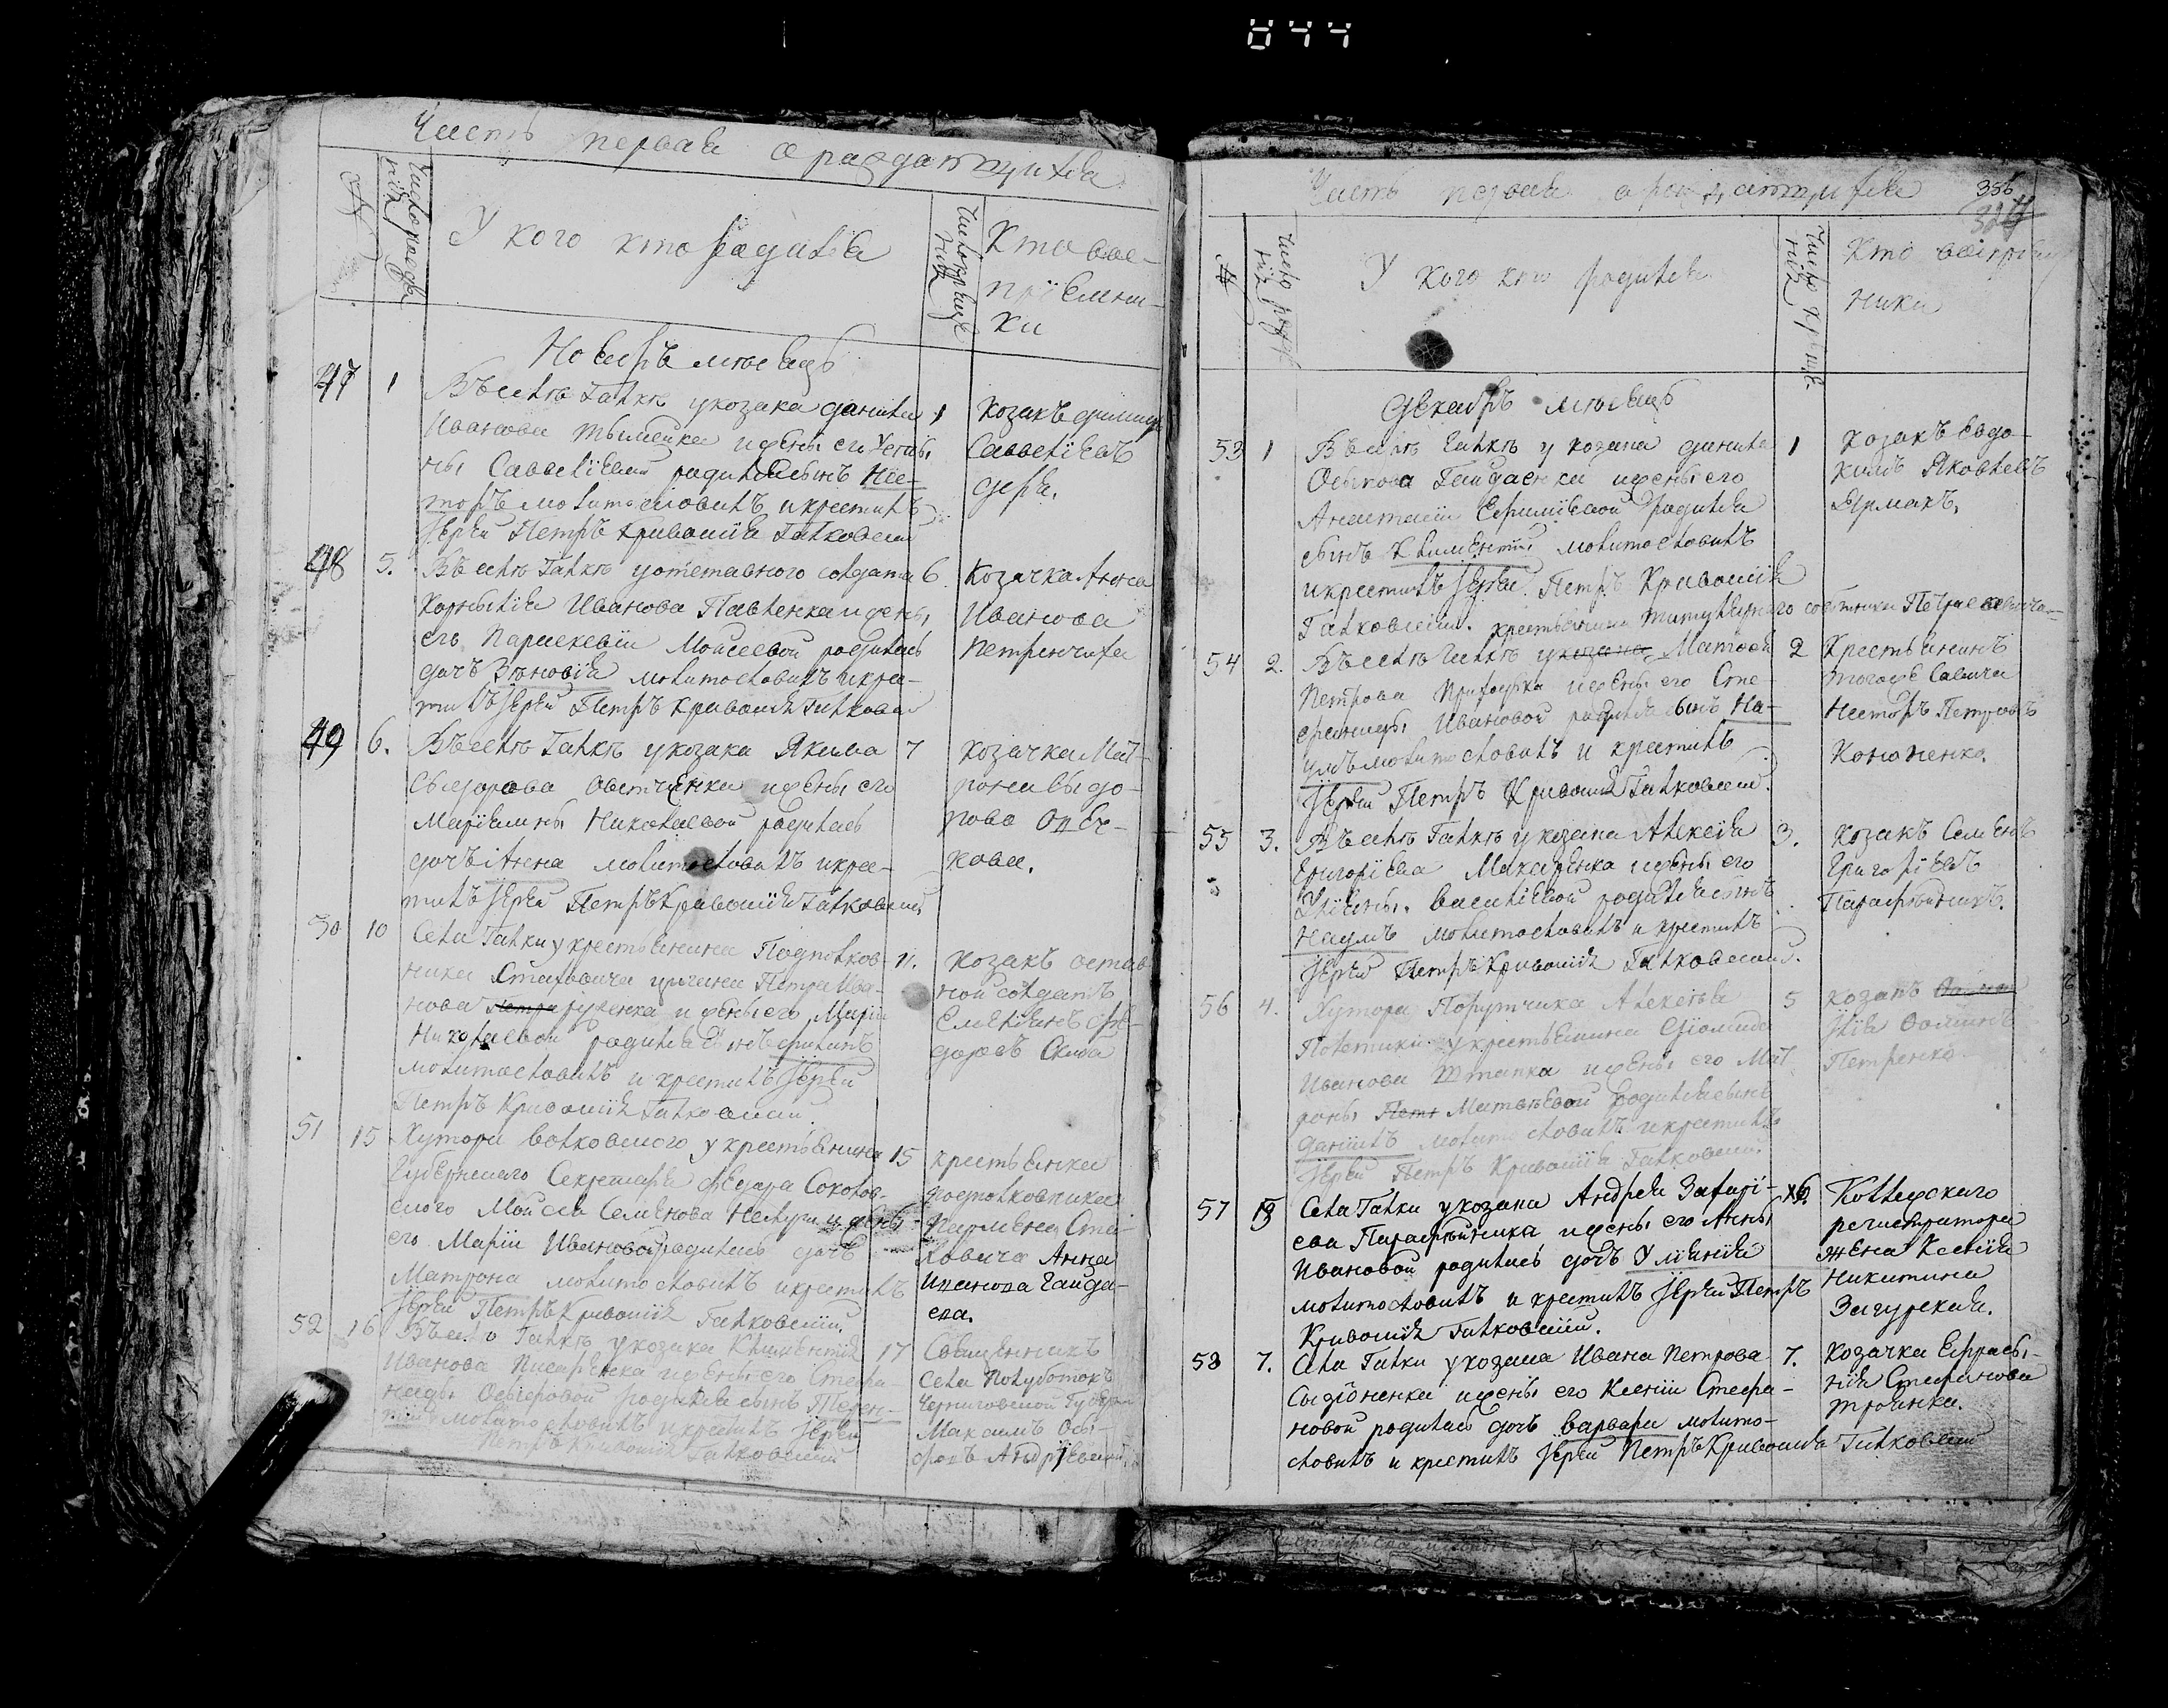 844
Часть первая о раждающихся
№
Число рожде
нія
У кого кто родился
Число креще
нія
Кто вос-
пріемни-
ки
Ноябръ месяцъ
47 1 Въ селѣ Галкѣ у козака Данила 1
Иванова и жены его Устіи-
ны Савеліевой родился сынъ Нес-
торъ молитвословилъ и крестилъ
Іерей Петръ Кривошія Галковскій
Козакъ
Савеліевъ
48 5. Въ селѣ Галкѣ у отставного солдата 6
Корнилія Иванова Павленка и жены
его Параскевіи Моисеевой родилась
дочъ Зѣновія молитвословилъ и крес-
тилъ Іерей Петръ Кривошія Галковскій
Козачка Анна
Иванова
Петренчиха
49 6. Въ селѣ Галкѣ у козака Якима 7
Сыдорова Овстченка и жены его
Маріямны Николаевой родилась
дочъ Анна молитвословилъ и крес-
тилъ Іерей Петръ Кривошія Галковскій
козачка Мат-
рона Сыдо-
рова
50 10 Села Галки у крестьянина Подполков- 11.
ника Стаховича Петра Ива-
нова и жены его Маріи
Николаевой родился сынъ Филипъ
молитвословилъ и крестилъ Іерей
Петръ Кривошія Галковскій
козакъ отстав
ной солдатъ
Емеліянъ Фе-
доровъ Скиба
51 15 Хутора Волковского у крестьянина 15
Губернскаго Секретаря Федора Соколов-
ского Мойсея Семенова и жены
его Маріи Ивановой родилась дочъ
Матрона молитвословилъ и крестилъ
Іерей Петръ Кривошія Галковскій.
крестьянка
подполковника
Пармена Ста-
ховича Анна
Иванова Гайда-
ева.
52 16 Въ селѣ Галкѣ у козака Климентія 17
Иванова Писаренка и жены его Стефа-
ниды родился сынъ Терен-
тій молитвословилъ и крестилъ Іерей
Петръ Кривошія Галковскій
Священникъ
села Полуботокъ
Черниговской Губерніи
Максимъ Оси-
фовъ Андріевскій.
Часть первая о раждающихся
356
№
Число рожд
нія
У кого кто родился
Число креще
нія
Кто воспріем
ники
Декабръ месяцъ
53 1 Въ селѣ Галкѣ у козака Данила 1
Осыпова Гайдаенка и жены его
Анастасіи Ефиміевой родился
сынъ Климентій молитвословилъ
и крестилъ Іерей Петръ Кривошія
Галковскій.
козакъ Евдо-
кимъ Яковлевъ
Ярмакъ.
крестьянина титулярнаго совѣтника Петра
54 2. Въ селѣ Галкѣ у козака Матвея 2
Петрова Приходька и жены его Сте-
фаниды Ивановой родился сынъ На-
умъ молитвословилъ и крестилъ
Іерей Петръ Кривошія Галковскій.
Крестьянинъ
тогоже Савича
Несторъ Петровъ
Кононенко.
55 3. Въ селѣ Галкѣ у козака Алексія 3.
Григоріева Макаренка и жены его
Уліяны Василіевой родился сынъ
Наумъ молитвословилъ и крестилъ
Іерей Петръ Кривошія Галковскій.
козакъ Семенъ
Григоріевъ
Парафѣйникъ.
56 4. Хутора Порутчика Алексѣя 5
Полетики у крестьянина Діомида
Иванова Штапка и жены его Мат
роны Петр Матвѣевой родился сынъ
Даніилъ молитвословилъ и крестилъ
Іерей Петръ Кривошія Галковскій.
козакъ
Илія Фоминъ
Петренко
57 Села Галки у козака Андрея Захарі- 6.
ева Парафѣйника и жены его Анны
Ивановой родилась дочъ Уліянія
молитвословилъ и крестилъ Іерей Петръ
Кривошія Галковскій.
Коллежскаго
регистратора
жена Ксенія
Никитина
Загурская.
58 7. Села Галки у козака Ивана Петрова 7.
и жены его Ксеніи Стефа-
новой родилась дочъ Варвара молитво-
словилъ и крестилъ Іерей Петръ Кривошія Галковскій
Козачка Ефросы-
нія Стефанова
Троянка.